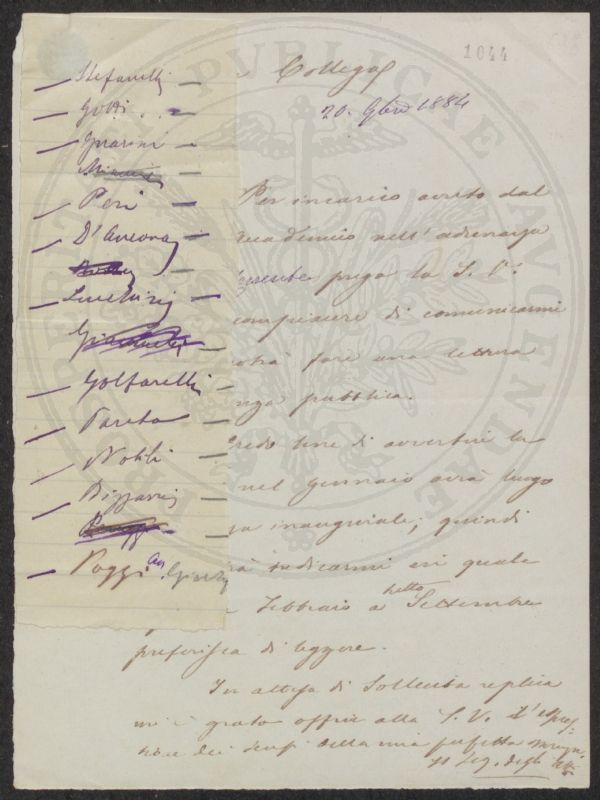 Stefanelli
Gotti
Guarini
Peri
D'Ancona
Luchini
Golfarelli
Pareto
Nobili
Bizzarri
Poggi
1044
Collega
20. 9bre 1884
Per incarico avuto dal
nell' adunanza
prega la S. V.
compiacere di comunicarmi
potrà fare una lettura
pubblica.
Credo bene di avvertire la
nel gennaio avrà luogo
inaugurale; quindi
indicarmi in quale
Febbraio a tutto Settembre
preferisca di leggere.
In attesa di sollecita replica
mi è grato offrire alla S. V. l'espres-
sione dei sensi della mia perfetta
Il Seg. degli Atti